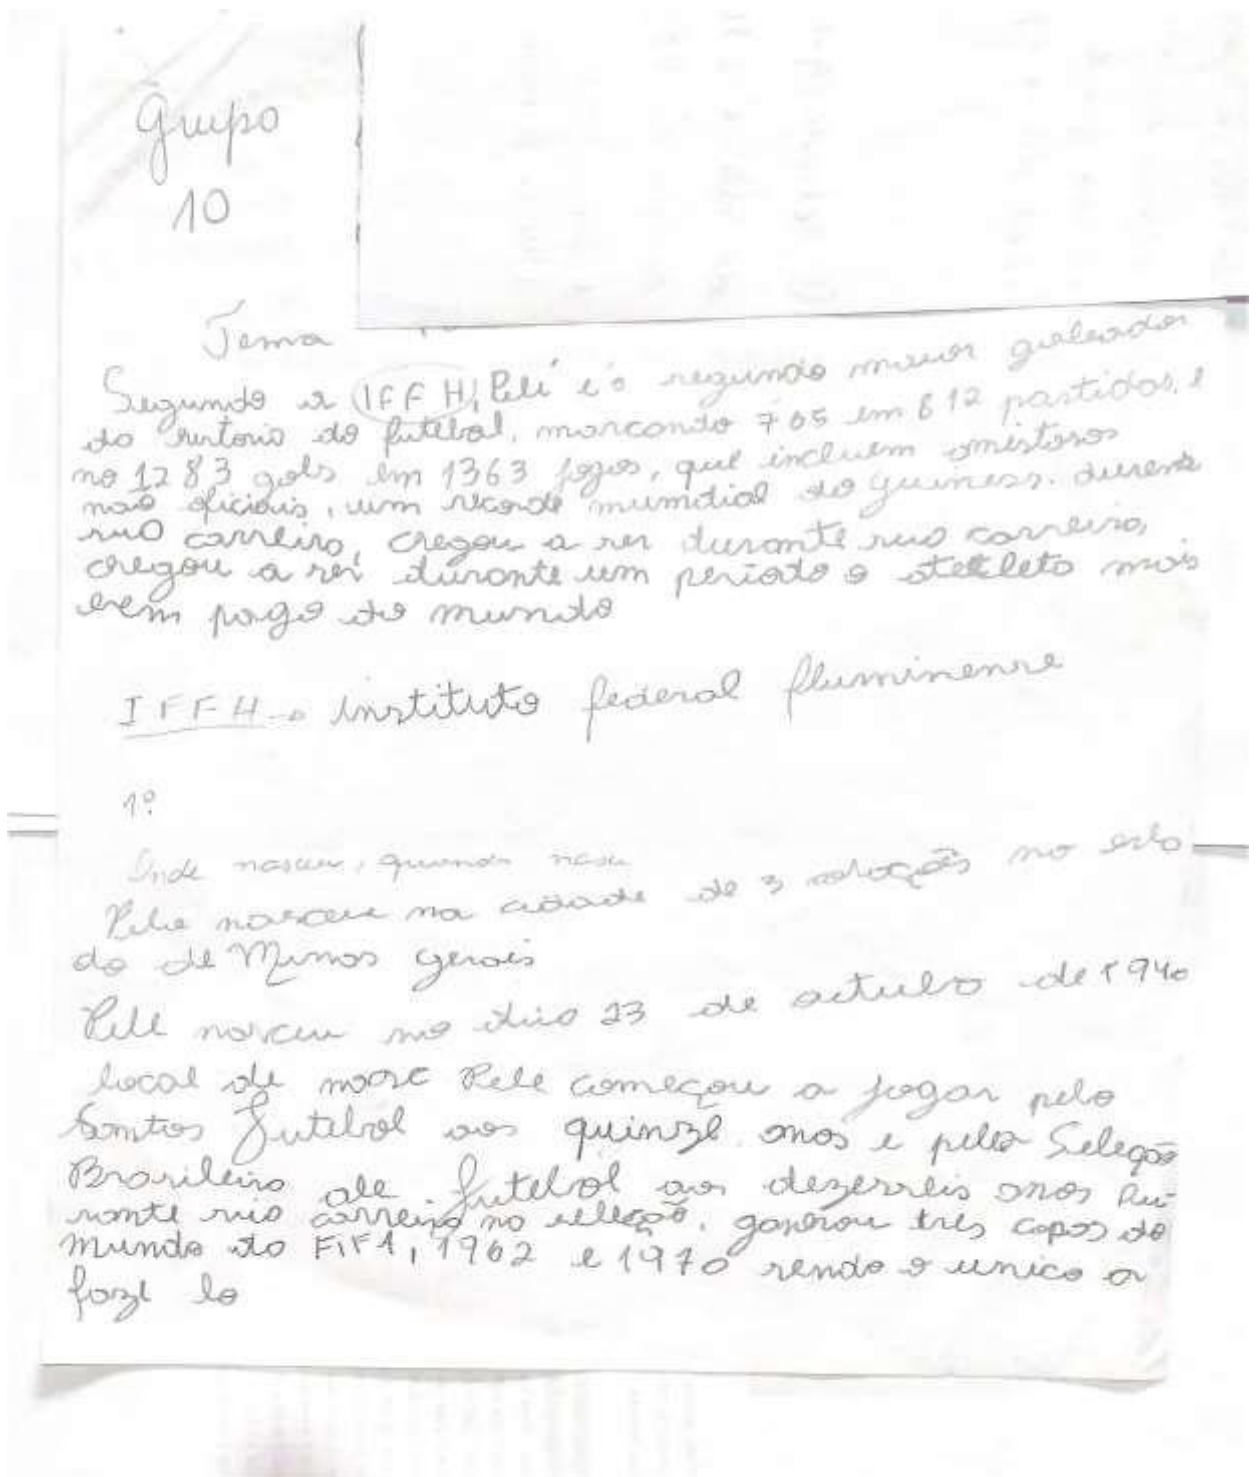 Grupo
10
Tema
Segundo a IFFH, Pelé é o segundo maior goleador
do historia do futebol, marcando 765 em 812 partidas, e
no 1283 gols em 1363 jogos, que incluem amistosos
não oficiais, um recorde mundial do guiness. durente
sua carreira, chegou a ser durante sua carreira,
chegou a ser durante um periodo o atetleta mais
bem pago do mundo
IFFH → instituto federal fluminense
1º
Onde nasceu, quando nasu
Pele nasceu na cidade de 3 corações no esta
do de Minas gerais
Pelé nasceu no dia 23 de outubro de 1940
local de nasc Pelé começou a jogar pelo
Santos futebol aos quinze anos e pela Seleção
Brasileira de futebol aos dezesseis anos Du
rante sua carreira na seleção, ganhou três copas do
mundo da FIFA, 1962 e 1970 sendo o unico a
faze lo